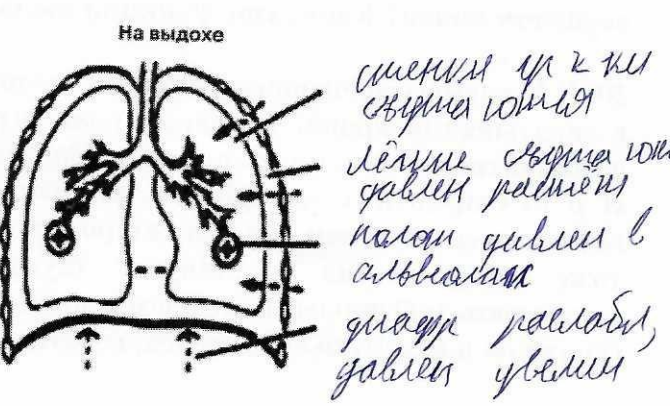 На выдохе
стенки гр к ки
сжимаются
лёгкие сжима ют
давлен растёт
полож давлен в
альвеолах
диафр расслабл,
давлен увелич